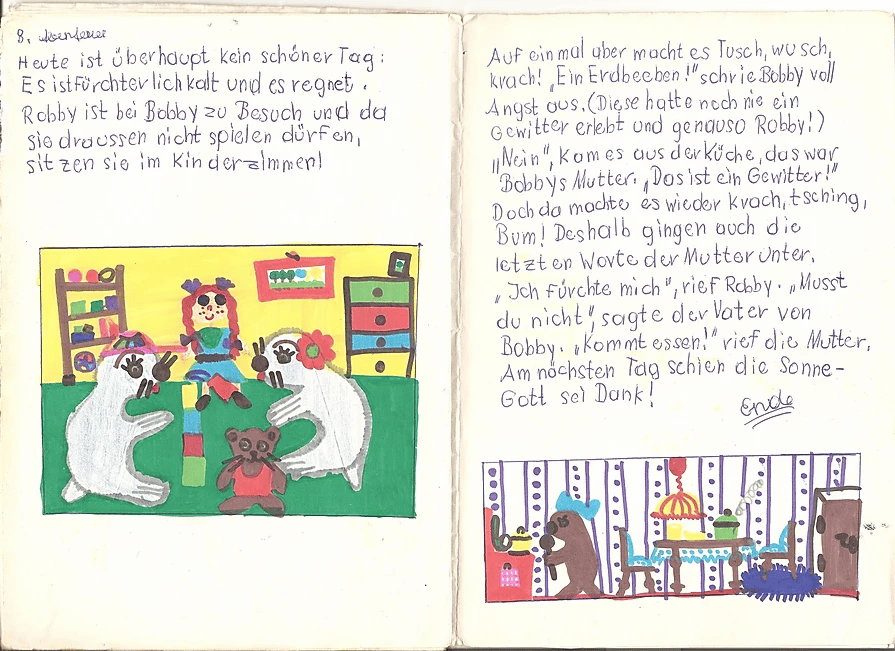 8. Abenteuer
Heute ist überhaupt kein schöner Tag:
Es ist fürchterlich kalt und es regnet.
Robby ist bei Bobby zu Besuch und da
sie draussen nicht spielen dürfen,
sitzen sie im Kinderzimmer!
Auf einmal aber macht es Tusch, wusch,
krach! „Ein Erdbeeben!" schrie Bobby voll
Angst aus. (Diese hatte noch nie ein
Gewitter erlebt und genauso Robby!)
„Nein", kam es aus der Küche, das war
Bobbys Mutter. „Das ist ein Gewitter!"
Doch da machte es wieder krach, tsching,
Bum! Deshalb gingen auch die
letzten Worte der Mutter unter.
„Ich fürchte mich", rief Robby. „Musst
du nicht", sagte der Vater von
Bobby. „Kommt essen!" rief die Mutter.
Am nächsten Tag schien die Sonne-
Gott sei Dank!
Ende